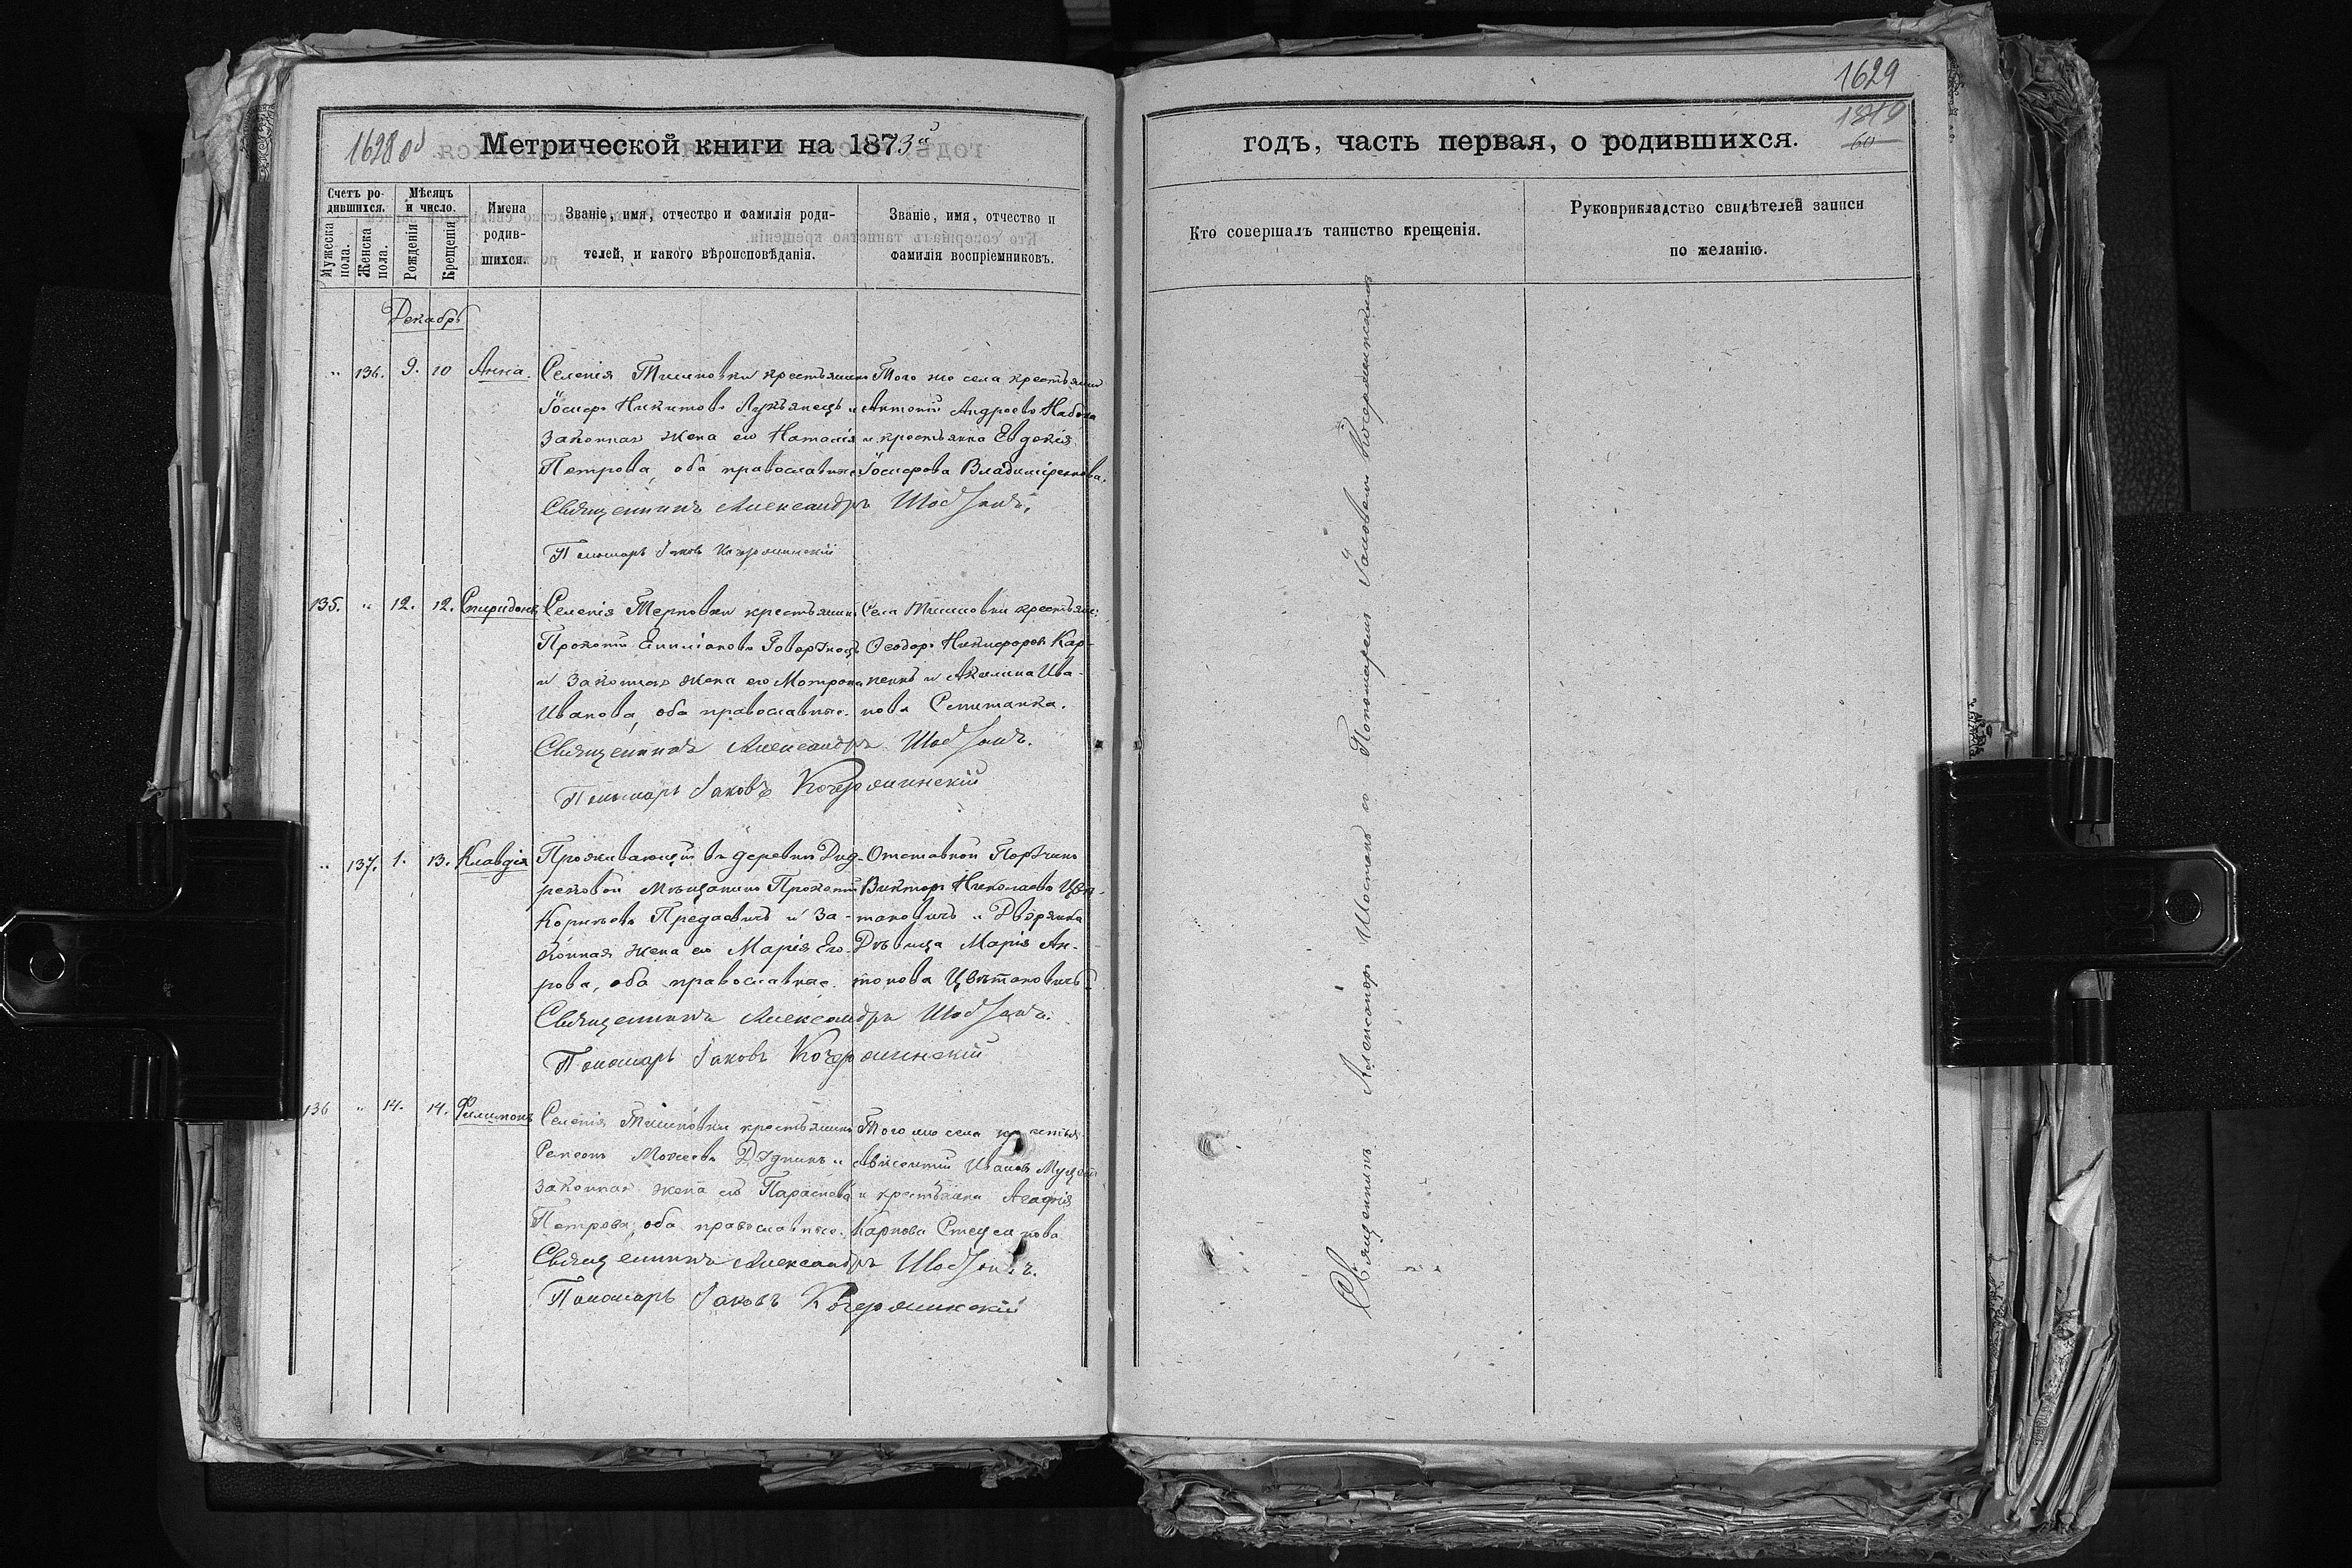 1628 об
Метрической книги на 1873й
Счетъ ро-
дившихся.
Мужеска
пола.
Женска
пола.
Мѣсяцъ
и число.
Рожденія
Крещенія
Имена
родив-
шихся.
Званіе, имя, отчество и фамилія роди-
телей, и какого вѣроисповѣданія.
Званіе, имя, отчество и
фамилія воспріемниковъ.
Декабрь
" 136. 9. 10 Анна.
Селенія Тишковки крестьянинъ
Іосифъ Никитовъ и
законная жена его Наталія
Петрова, оба православные
Того же села крестьянинъ
Антоній Андреевъ Набока
и крестьянка Евдокія
Іосифова Владиміренкова.
Священникъ Александръ Шостакъ.
Пономарь Іаковъ Кочержинскій
135. " 12. 12. Спиридонъ
Селенія Терновки крестьянинъ
Прокопій
и законная жена его Матрона
Иванова, оба православные.
Села Тишковки крестьяне:
Ѳеодоръ Никифоровъ Кар-
пенко и Акилина Ива-
нова
Священникъ Александръ Шостакъ.
Пономарь Іаковъ Кочержинскій
" 137. 1. 13. Клавдія
Проживающій въ деревни
мѣщанинъ Прокопій
Корнѣевъ и за-
конная жена его Марія Его-
рова, оба православные.
Отставной Поручикъ
Викторъ Николаевъ Цвѣ-
тковичъ и Дворянка
Дѣвица Марія Ан-
тонова
Священникъ Александръ Шостакъ.
Пономарь Іаковъ Кочержинскій
136 " 14. 14. Филимонъ
Селенія Тишковки крестьянинъ
Моисеевъ Дудникъ и
законная жена его Параскева
Петрова, оба православные.
Того же села
Авксентій Ивановъ
и крестьянка Агафія
Карпова
Священникъ Александръ Шостакъ.
Пономарь Іаковъ Кочержинскій
1629
1819
60
годъ, часть первая, о родившихся.
Кто совершалъ таинство крещенія.
Рукоприкладство свидѣтелей записи
по желанію.
Священникъ Александръ Шостакъ съ Пономаремъ Іаковомъ Кочержинскимъ